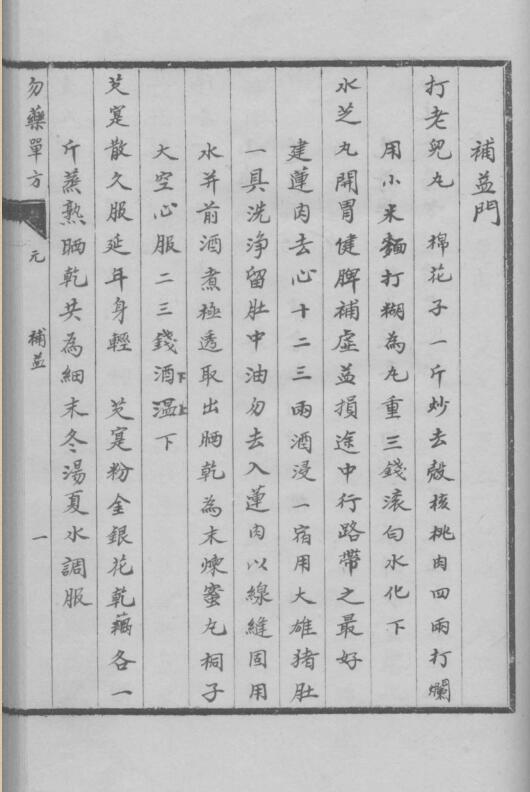 補益門
打老兒丸　棉花子一斤炒去殼核桃肉四兩打爛
用小米麵打糊為丸重三錢滚白水化下
水芝丸開胃健脾補虛益損途中行路帶之最好
建蓮肉去心十二三兩酒浸一宿用大雄猪肚
一具洗浄留肚中油勿去入蓮肉以線縫固用
水并前酒煮極透取出晒乾為末煉蜜丸桐子
大空心服二三錢酒下温上下
芡寔散久服延年身輕　芡寔粉金銀花乾藕各一
斤蒸熟晒乾共為細末冬湯夏水調服
勿藥單方　元　補益　一